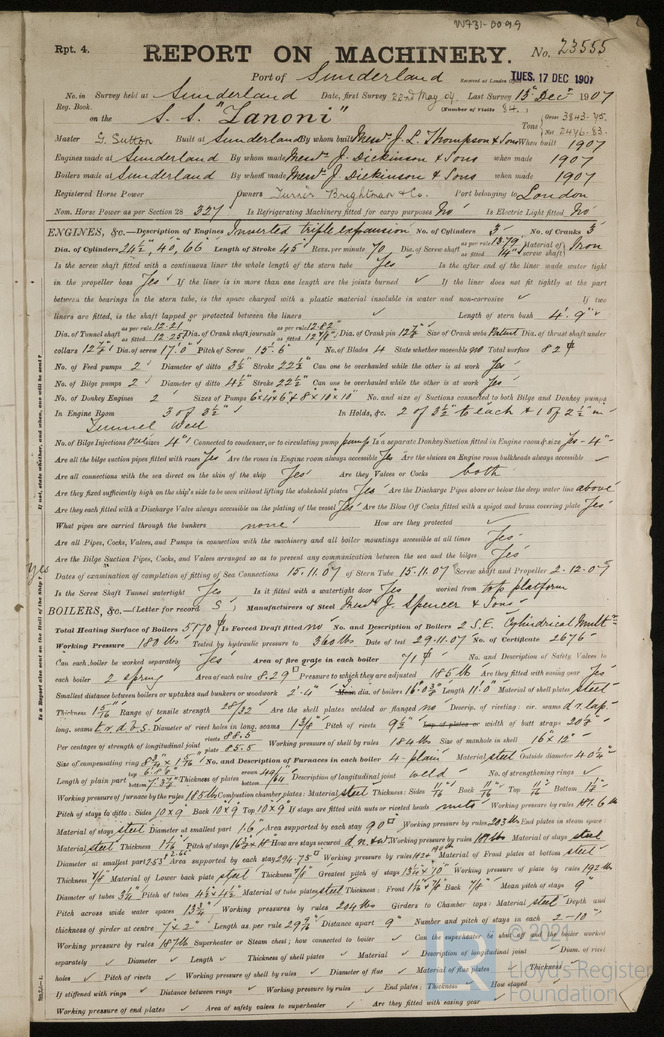 W731-0099
Rpt. 4.
REPORT ON MACHINERY. No. 23555
Port of Sunderland Received at London TUES. 17 DEC 1907
No. in Survey held at Sunderland Date, first Survey 22nd May 07 Last Survey 13 Decr 1907
Reg. Book. (Number of Visits 84)
on the S. S. "Zanoni" Tons Gross 3843.45 Net 2446.83
Master G. Sutton Built at Sunderland By whom built Messrs J. L. Thompson & Sons When built 1907
Engines made at Sunderland By whom made Messrs J. Dickinson & Sons when made 1907
Boilers made at Sunderland By whom made Messrs J. Dickinson & Sons when made 1907
Registered Horse Power Owners Turner Brightman & Co. Port belonging to London
Nom. Horse Power as per Section 28 327 Is Refrigerating Machinery fitted for cargo purposes No Is Electric Light fitted No
ENGINES, &c.—Description of Engines Inverted Triple expansion No. of Cylinders 3 No. of Cranks 3
Dia. of Cylinders 24½, 40, 66 Length of Stroke 45" Revs. per minute 70 Dia. of Screw shaft as per rule 13.79 as fitted 14" Material of screw shaft Iron
Is the screw shaft fitted with a continuous liner the whole length of the stern tube Yes Is the after end of the liner made water tight
in the propeller boss Yes If the liner is in more than one length are the joints burned ✓ If the liner does not fit tightly at the part
between the bearings in the stern tube, is the space charged with a plastic material insoluble in water and non-corrosive ✓ If two
liners are fitted, is the shaft lapped or protected between the liners ✓ Length of stern bush 4'. 9"
Dia. of Tunnel shaft as per rule 12.21 as fitted 12.25 Dia. of Crank shaft journals as per rule 12.82 as fitted 12⅞ Dia. of Crank pin 12⅞ Size of Crank webs Patent Dia. of thrust shaft under
collars 12⅞ Dia. of screw 17'.0" Pitch of Screw 15'.6" No. of Blades 4 State whether moveable no Total surface 82
No. of Feed pumps 2 Diameter of ditto 3½ Stroke 22½ Can one be overhauled while the other is at work Yes
No. of Bilge pumps 2 Diameter of ditto 4½ Stroke 22½ Can one be overhauled while the other is at work Yes
No. of Donkey Engines 2 Sizes of Pumps 6"x4"x6" & 8"x10"x10" No. and size of Suctions connected to both Bilge and Donkey pumps
In Engine Room 3 of 3½" In Holds, &c. 2 of 3½" to each & 1 of 2½" in
Tunnel Well
No. of Bilge Injections one sizes 4" Connected to condenser, or to circulating pump pump Is a separate Donkey Suction fitted in Engine room & size Yes - 4"
Are all the bilge suction pipes fitted with roses Yes Are the roses in Engine room always accessible Yes Are the sluices on Engine room bulkheads always accessible ✓
Are all connections with the sea direct on the skin of the ship Yes Are they Valves or Cocks both
Are they fixed sufficiently high on the ship's side to be seen without lifting the stokehold plates Yes Are the Discharge Pipes above or below the deep water line above
Are they each fitted with a Discharge Valve always accessible on the plating of the vessel Yes Are the Blow Off Cocks fitted with a spigot and brass covering plate Yes
What pipes are carried through the bunkers none How are they protected ✓
Are all Pipes, Cocks, Valves, and Pumps in connection with the machinery and all boiler mountings accessible at all times Yes
Are the Bilge Suction Pipes, Cocks, and Valves arranged so as to prevent any communication between the sea and the bilges Yes
Dates of examination of completion of fitting of Sea Connections 15.11.07 of Stern Tube 15.11.07 Screw shaft and Propeller 2.12.07
Is the Screw Shaft Tunnel watertight Yes Is it fitted with a watertight door Yes worked from top platform
BOILERS, &c.—(Letter for record S) Manufacturers of Steel Messrs J. Spencer & Sons
Total Heating Surface of Boilers 5170 Is Forced Draft fitted no No. and Description of Boilers 2 S.E. Cylindrical Mult
Working Pressure 180 lbs Tested by hydraulic pressure to 360 lbs Date of test 29.11.07 No. of Certificate 2676
Can each boiler be worked separately Yes Area of fire grate in each boiler 71 No. and Description of Safety Valves to
each boiler 2 spring Area of each valve 8.29 Pressure to which they are adjusted 185 lbs Are they fitted with easing gear Yes
Smallest distance between boilers or uptakes and bunkers or woodwork 2'.4" Mean dia. of boilers 16'.0 Length 11'.0 Material of shell plates steel
Thickness 1 5/16 Range of tensile strength 28/32 Are the shell plates welded or flanged no Descrip. of riveting: cir. seams d.r. lap.
long. seams t.r.d.b.s. Diameter of rivet holes in long. seams 1⅜ Pitch of rivets 9½ Lap of plates or width of butt straps 20⅛
Per centages of strength of longitudinal joint rivets 88.5 plate 85.5 Working pressure of shell by rules 184 lbs Size of manhole in shell 16" x 12"
Size of compensating ring No. and Description of Furnaces in each boiler 4 - plain Material steel Outside diameter 40¼
Length of plain part top bottom Thickness of plates crown bottom Description of longitudinal joint weld No. of strengthening rings ✓
Working pressure of furnace by the rules 185 lbs Combustion chamber plates: Material steel Thickness: Sides 11/16 Back 11/16 Top 11/16 Bottom 1½
Pitch of stays to ditto: Sides 10x9 Back 10x9 Top 10x9 If stays are fitted with nuts or riveted heads nuts Working pressure by rules 181.6 lb
Material of stays steel Diameter at smallest part 1.6 Area supported by each stay 90 Working pressure by rules 203 lbs End plates in steam space:
Material steel Thickness Pitch of stays How are stays secured d.n.&w. Working pressure by rules 181 lbs Material of stays steel
Diameter at smallest part Area supported by each stay 294.75 Working pressure by rules Material of Front plates at bottom steel
Thickness ⅞ Material of Lower back plate steel Thickness ⅞ Greatest pitch of stays Working pressure of plate by rules 192 lbs
Diameter of tubes 3¼ Pitch of tubes 4½ x 4½ Material of tube plates steel Thickness: Front Back ⅞ Mean pitch of stays 9"
Pitch across wide water spaces 13¾ Working pressures by rules 204 lbs Girders to Chamber tops: Material steel Depth and
thickness of girder at centre 7" x 2" Length as per rule Distance apart 9" Number and pitch of stays in each 2 - 10"
Working pressure by rules 187 lb Superheater or Steam chest; how connected to boiler ✓ Can the superheater be shut off and the boiler worked
separately ✓ Diameter ✓ Length ✓ Thickness of shell plates ✓ Material ✓ Description of longitudinal joint ✓ Diam. of rivet
holes ✓ Pitch of rivets ✓ Working pressure of shell by rules ✓ Diameter of flue ✓ Material of flue plates ✓ Thickness ✓
If stiffened with rings ✓ Distance between rings ✓ Working pressure by rules ✓ End plates: Thickness ✓ How stayed ✓
Working pressure of end plates ✓ Area of safety valves to superheater ✓ Are they fitted with easing gear ✓
Is a Report also sent on the Hull of the Ship? Yes If not, state whether, and when, one will be sent?
© 2021
LR
Lloyd's Register
Foundation